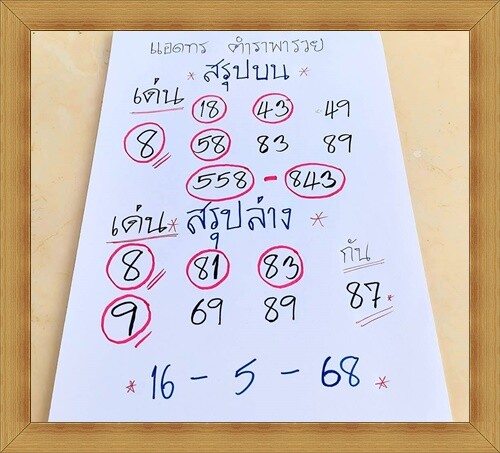 แอดทร ตำราพารวย
* สรุปบน *
เด่น 18 43 49
8 58 83 89
558 - 843
เด่น * สรุปล่าง *
8 81 83 กัน
9 69 89 87 *
* 16 - 5 - 68 *